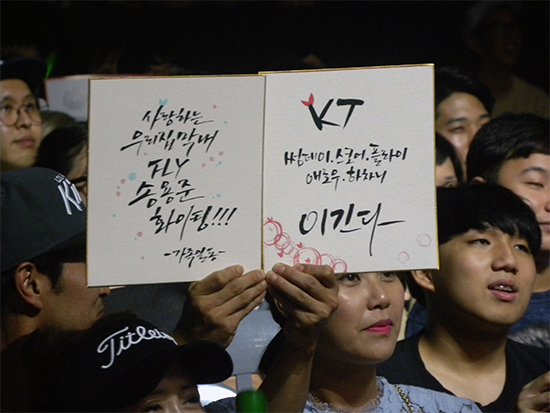 사랑하는
우리집막내
FLY
송용준
화이팅!!!
-가족일동-
KT
썸데이.스코어.플라이
애로우.하차니
이긴다
KT
Titleist